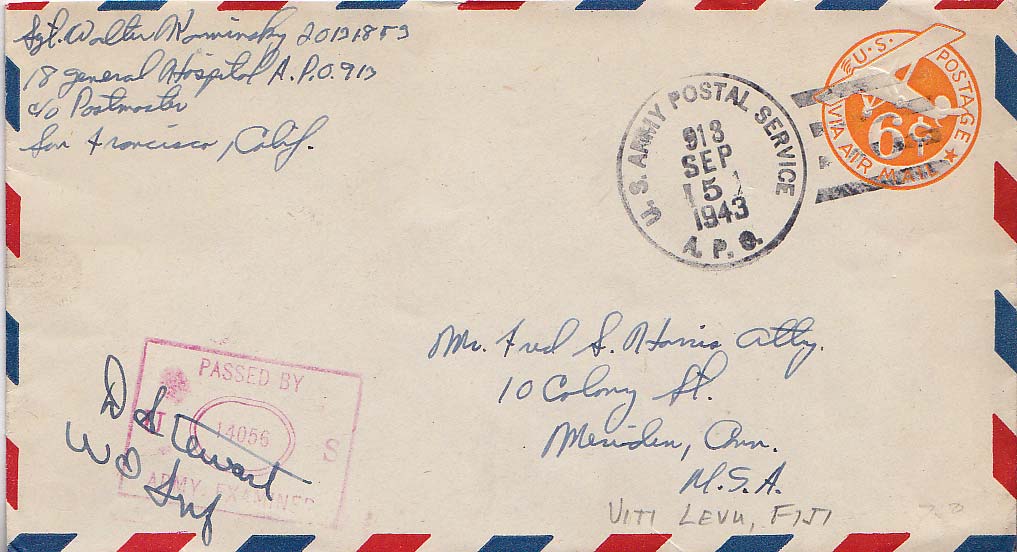 Sgt. Walter Kaminsky 20131853
18 General Hospital A.P.O. 913
c/o Postmaster
San Francisco, Calif.
U.S. POSTAGE
6¢
VIA AIR MAIL
U. S. ARMY POSTAL SERVICE
913
SEP
15
1943
A. P. O.
Mr. Fred S. Harris Atty.
10 Colony St.
Meriden, Conn.
U.S.A.
VITI LEVU, FIJI
PASSED BY
14056 S
ARMY EXAMINER
D Stewart
WO